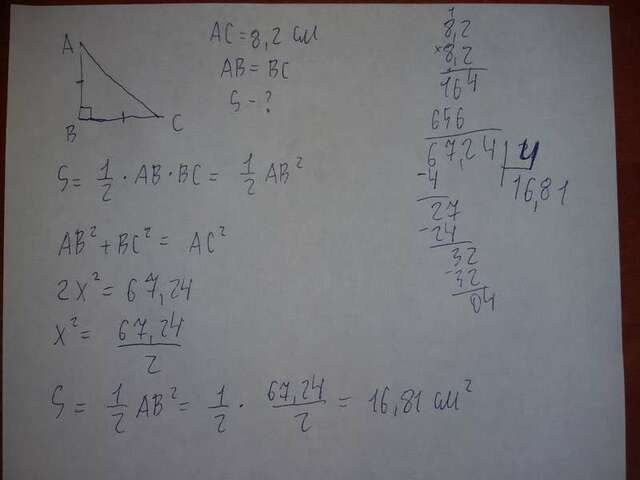 A
B
C
AC = 8,2 см
AB = BC
S - ?
S = 1/2 · AB · BC = 1/2 AB²
AB² + BC² = AC²
2x² = 67,24
x² = 67,24/2
S = 1/2 AB² = 1/2 · 67,24/2 = 16,81 см²
1
8,2
×8,2
164
656
67,24 4
-4 16,81
27
-24
32
-32
04